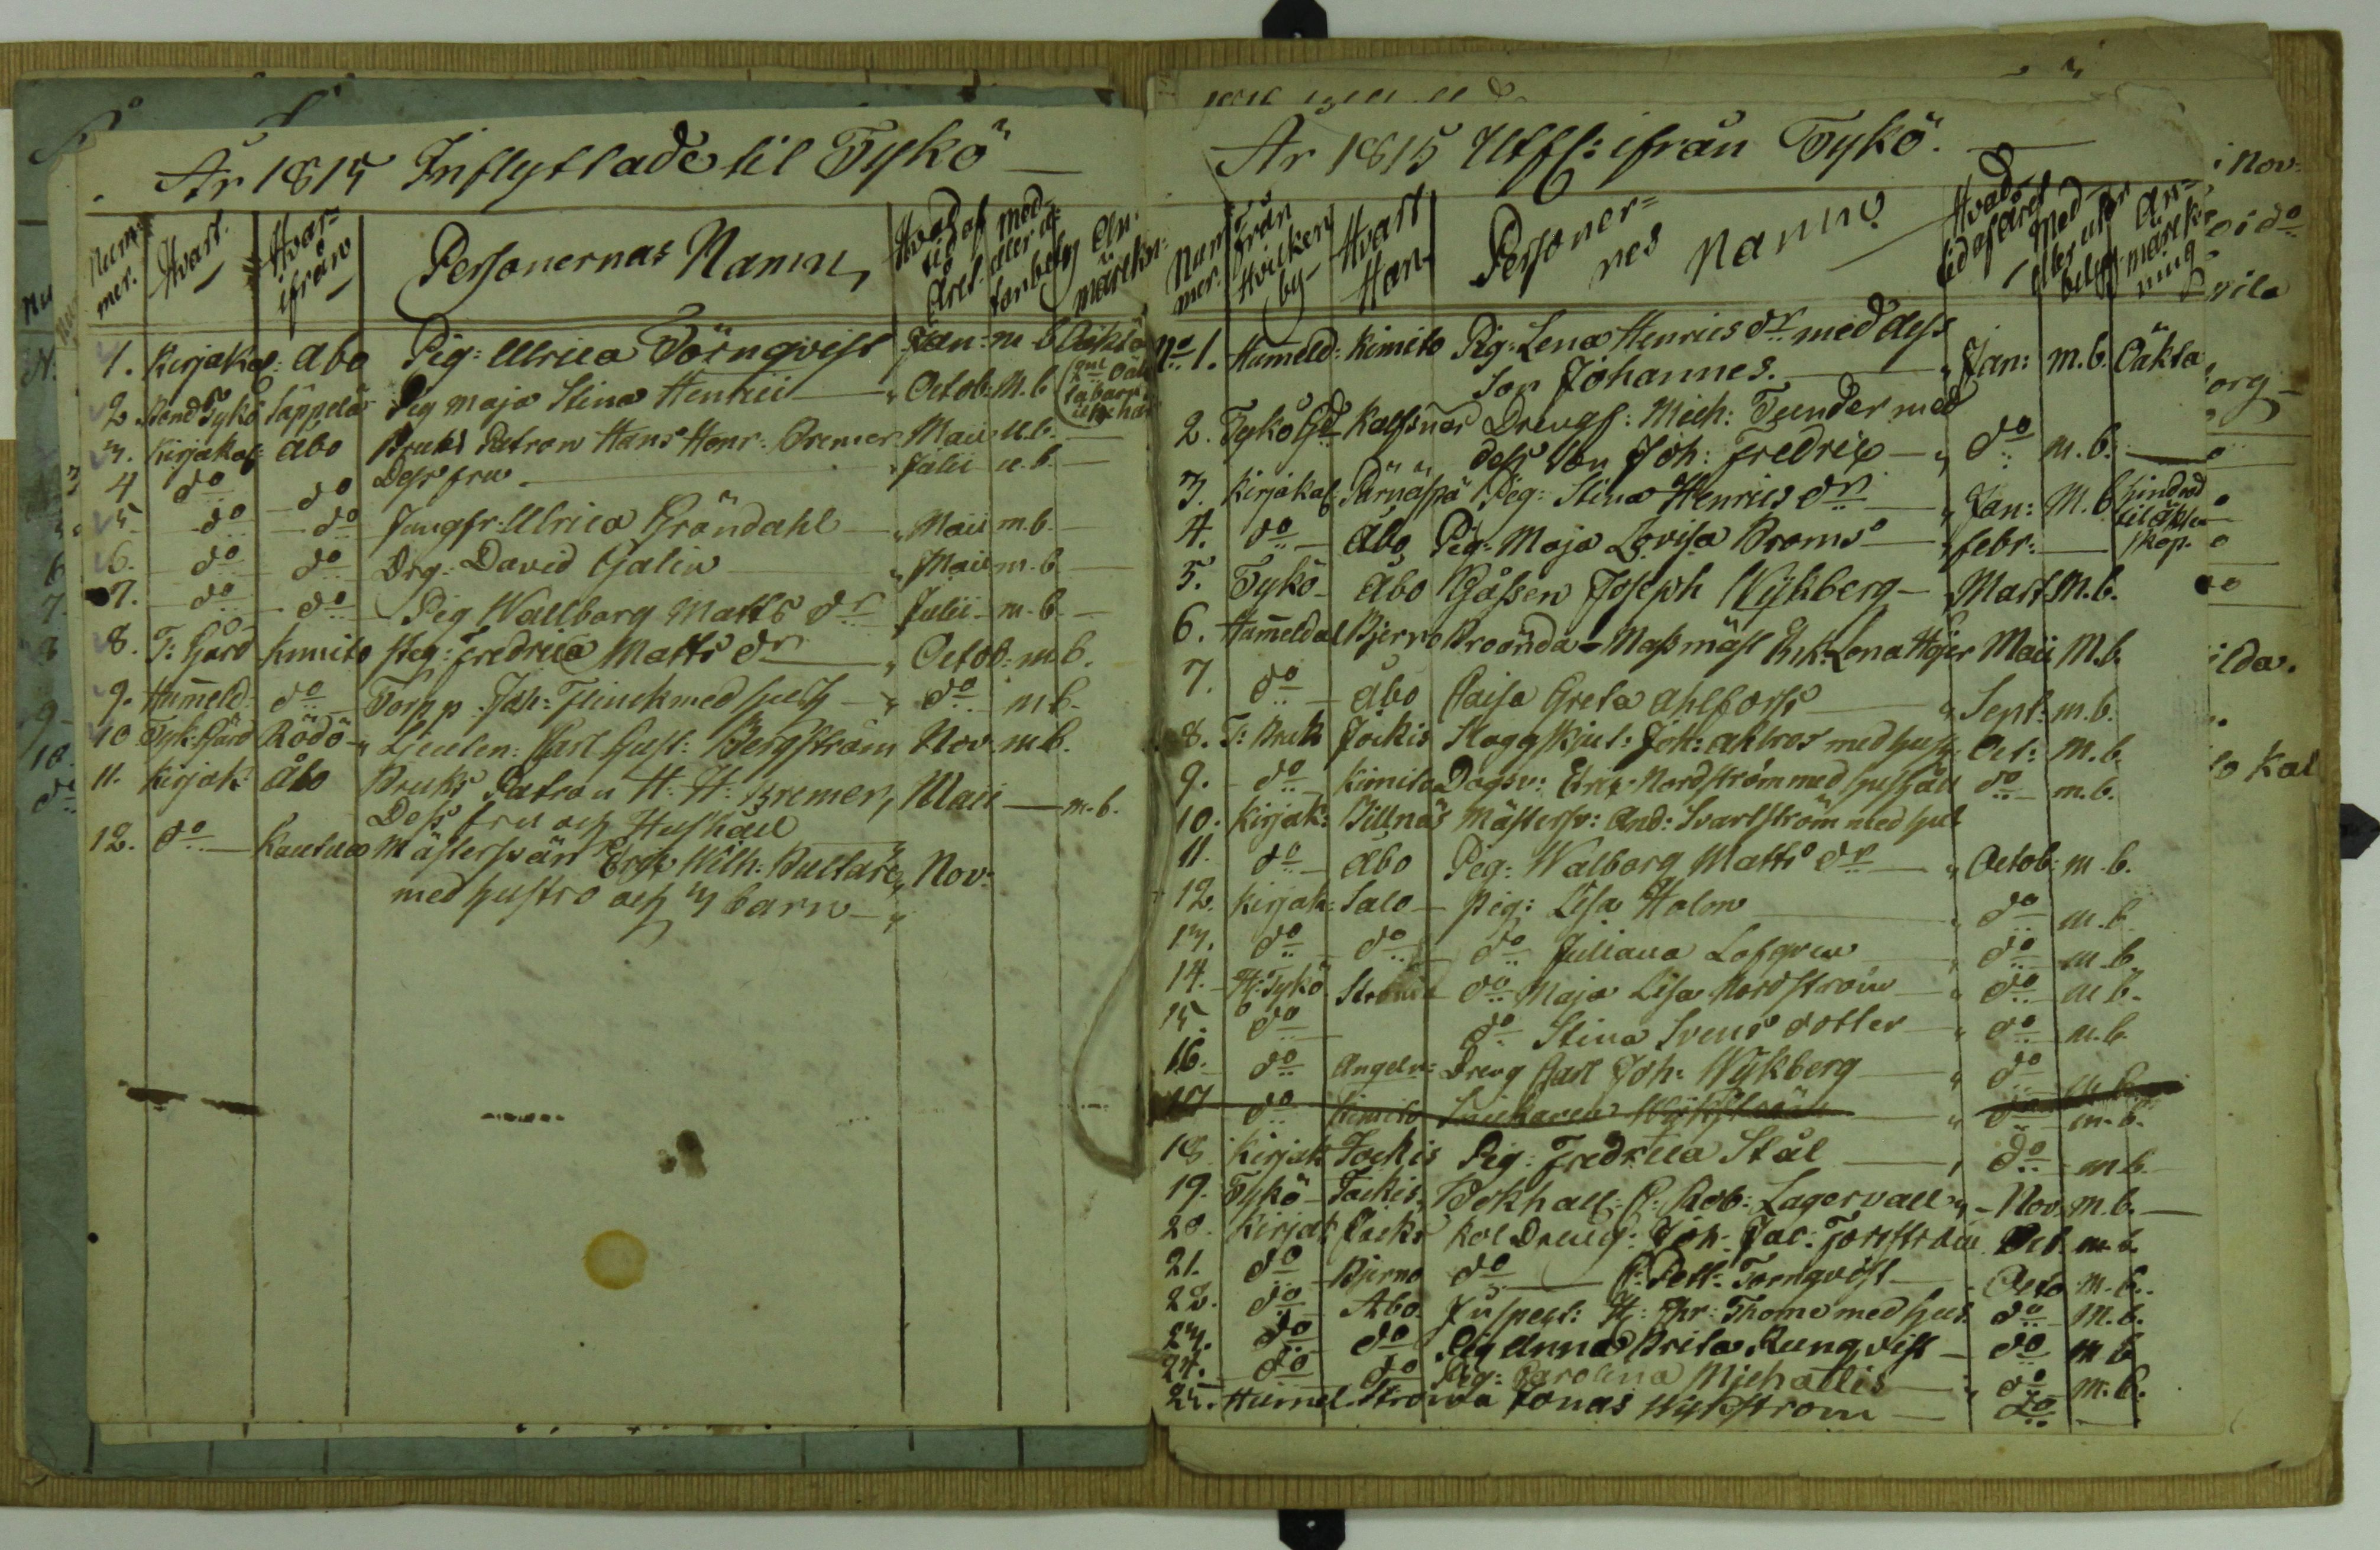 År 1815 Inflyttade til Tykö
Num-mer. Hvart. Hvar-ifrån Personernas Namn Hvad tid af Året. med eller utan betyg Anmärkn:
1. Kirjakal: Åbo Pig: Ulrica Törnqvist Jan: m b Oäkta
2. Rand Tykö Pig Maja Stina Henrici Octob: M. b
3. Kirjakal: Åbo Bruks Patron Hans Henr: Bremer Maii u. b. —
4 do do Dess fru — Julii u. b. —
5 do do Jungfr: Ulrica Gröndahl — Maii m. b. —
6. do do Drg: David Galin — Maii m. b. —
7. do do Pig Wallborg Matts dr Julii m. b. —
8. T: Gård Kimito Pig: Fredrica Matts dr — Octob: m b.
9. Hummeld: do Torpp. Joh: Flinck med hush — do m b.
10 Tyk: Gård Rödö Lieuten: Carl Gust: Bergström Nov. m b.
11. Kirjak: Åbo Bruks Patron H. H: Bremer, Maii — m. b.
Dess fru och Hushåll
12. do — Mästersvän Eric Wilh: Nov:
med hustro och 3 barn —
År 1815 Utfl: ifrån Tykö.
Num-mer. Från Hvilken by Hvart Han Personer-nes Namn Hvad tid af året Med eller utan betyg Anmärkning
No 1. Hummeld: Kimito Pig: Lena Henrics dr med dess
Son Johannes. — Jan: m. b. Oäkta
2. Tykö Gd Kalfsnäs Drengs: Mich: Tunder med
dess Son Joh: Fredric — do m. b. —
3. Kirjakal: Pärnäspä Pig: Stina Henrics dr — Jan: M. b.
4. do — Åbo Pig: Maja Lovisa Broms — febr: —
5. Tykö — Åbo Gåssen Joseph Wykberg — Mart M. b.
6. Hummeldal Bjerno Lena Höjer Maii M. b.
7. do — Åbo Caisa Greta Ahlfors — Sept: m. b.
8. T: Bruk Jockis Joh: Ahlros med hush Oct: M. b.
9. do — Kimito Dagsv: Eric Nordström med hushåll do — m. b.
10. Kirjak: Billnäs Mästersv: And: Svartström med hus
11. do Åbo Pig: Walborg Matts dr — Octob: m. b.
12. Kirjak: Salo — Pig: Lisa Holm — do m. b.
13. do — do — do Juliana Lofgren — do m. b.
14. H: Tykö Ströma do Maja Lisa Nordström — do m b.
15. do — do Stina Svens dotter — do m. b.
16. do Angeln: Dreng Carl Joh: Wykberg — do
17 do Kimito — do m. b.
18 Kirjak: Jockis Pig: Fredrica Stål — do m b.
19. Tykö — Jockis, Bokhåll: C: Rob: Lagervall — Nov. m. b. —
20. Kirjak Jockis Kol Dreng: Joh: Jac: Forsström Oct. m. b.
21. do — Bjerno do — C: Pett: Tornqvist — Octo m. b.
22. do — Åbo. Inspect: H: Thome med hus. do M. b.
23. do — do Pig Anna Brita Rungvist — do m b
24. do do Pig: Carolina Michaelis — do m. b.
25. Hummel. Ströma Jonas Wykstrom — do —